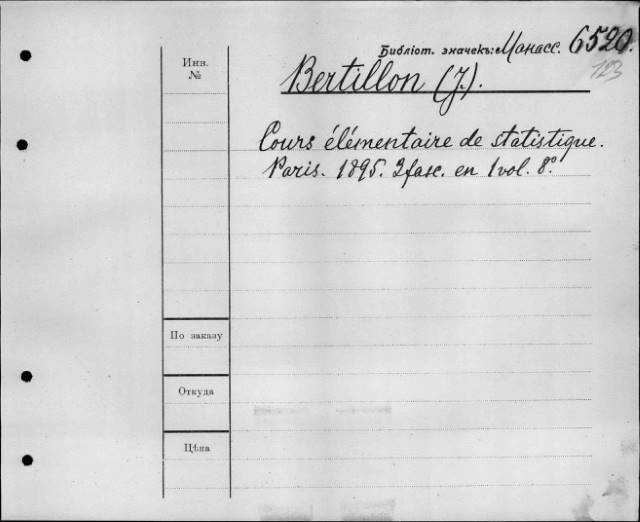 Библіот. значекъ: Манасс. 6520.
123
Инв.
№
Bertillon (J.).
Cours élémentaire de statistique.
Paris. 1895. 2 fasc. en 1 vol. 8°.
По заказу
Откуда
Цѣна
23